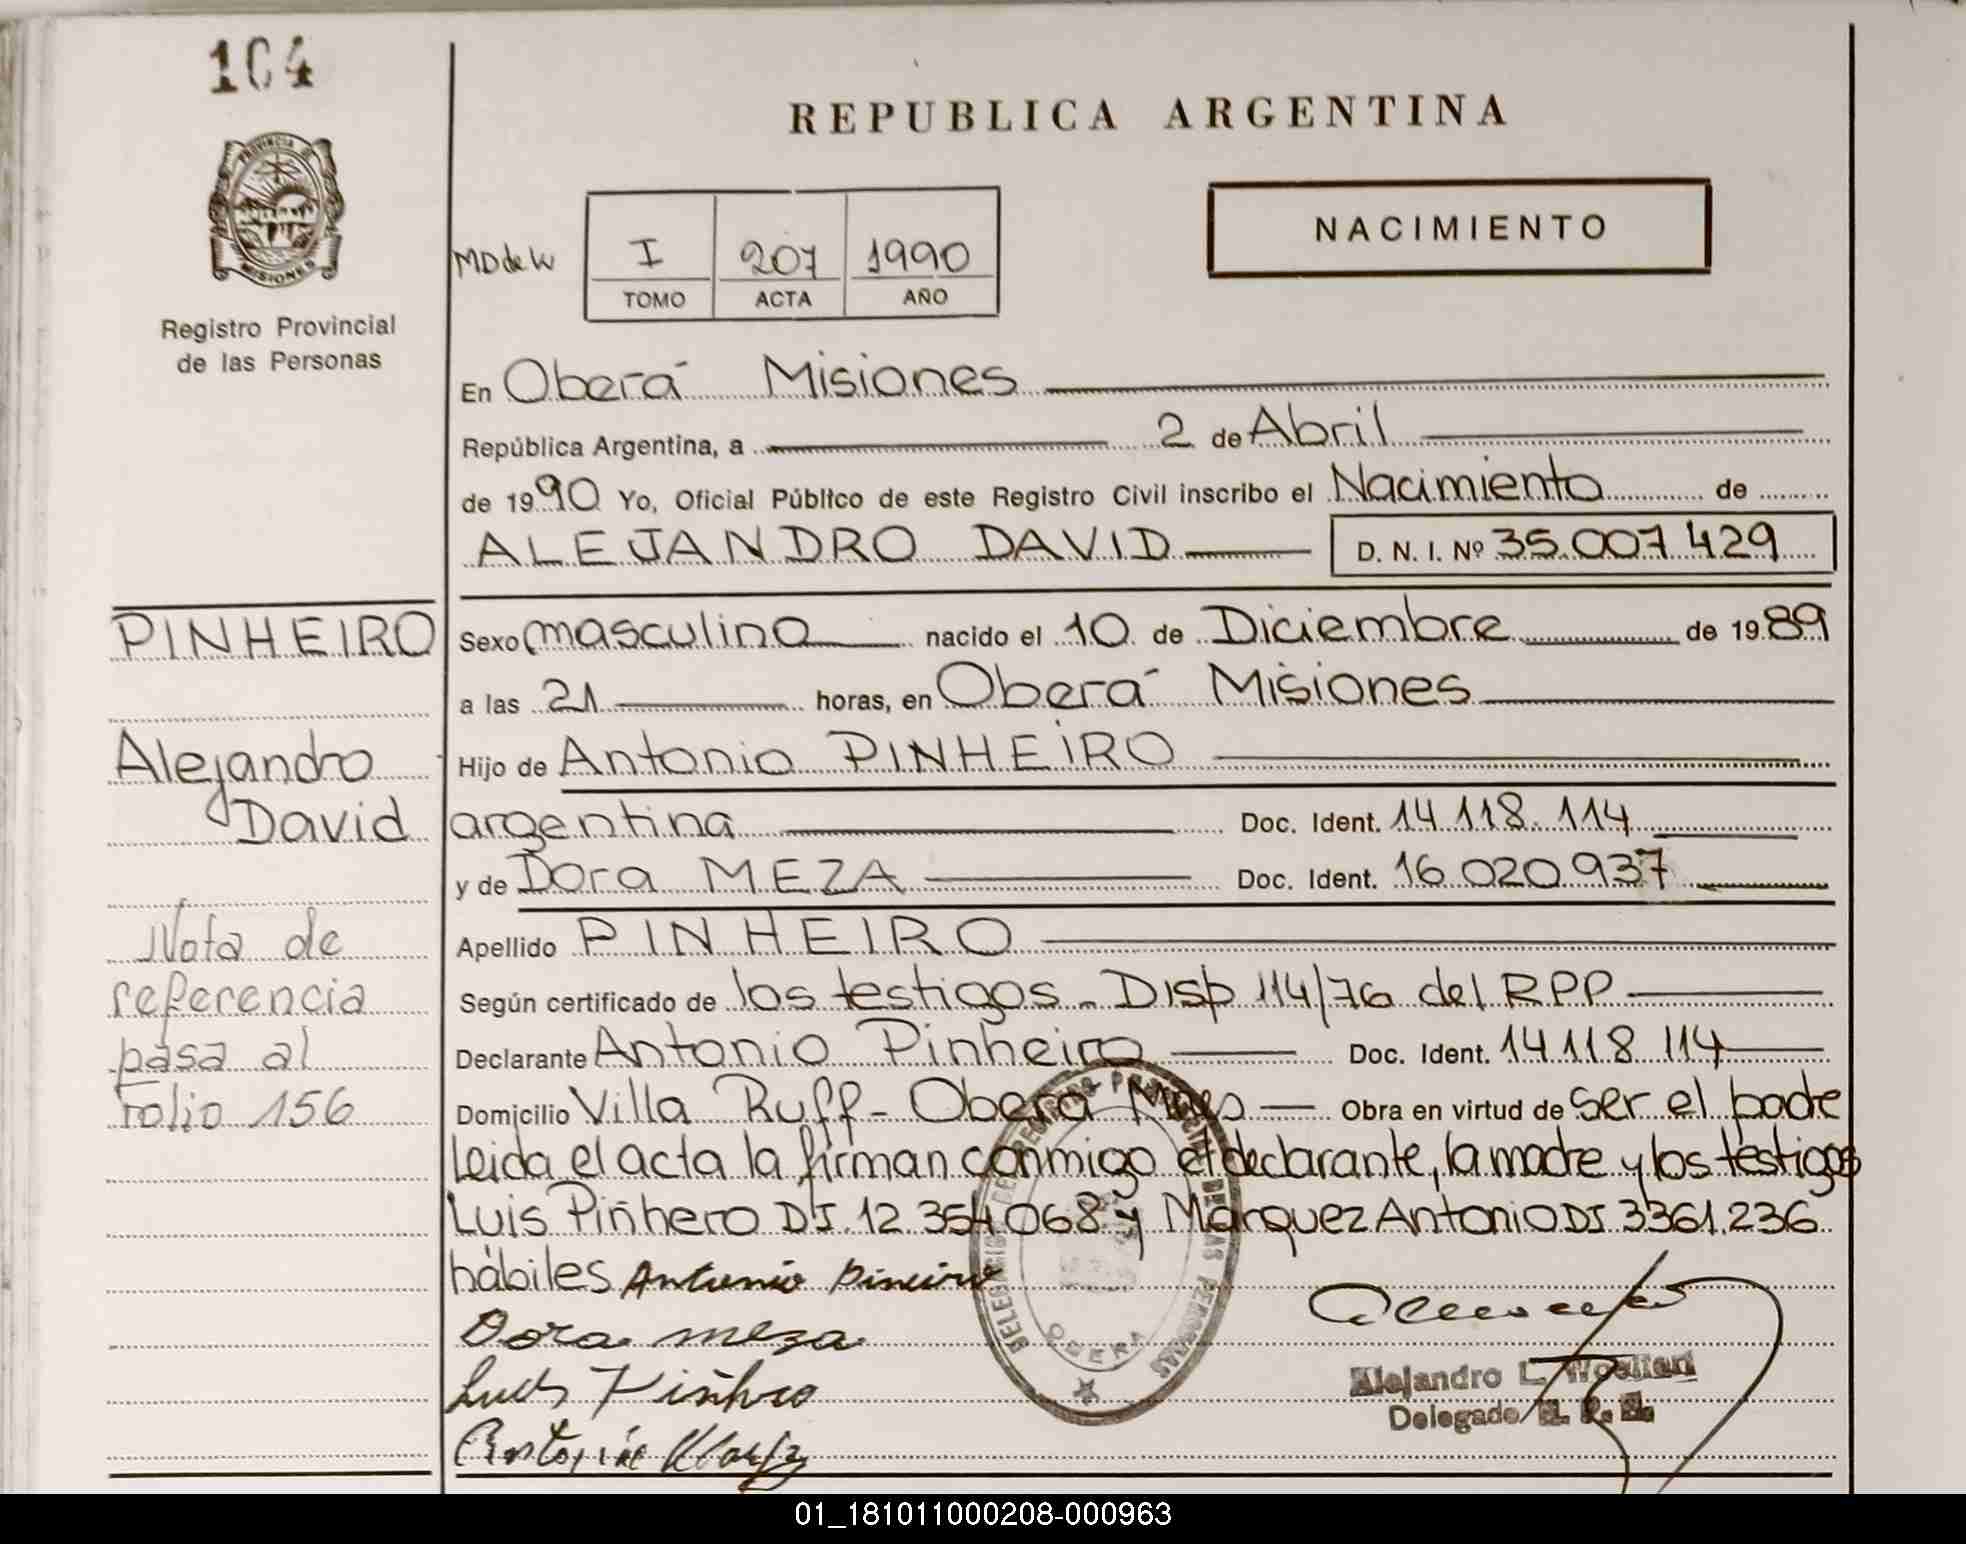 104
PROVINCIA DE
MISIONES
Registro Provincial
de las Personas
REPUBLICA ARGENTINA
NACIMIENTO
I 207 1990
TOMO ACTA AÑO
En Oberá Misiones
República Argentina, a 2 de Abril
de 1990 Yo, Oficial Público de este Registro Civil inscribo el Nacimiento de
ALEJANDRO DAVID D. N. I. Nº 35.007.429
PINHEIRO
Alejandro
David
Nota de
referencia
pasa al
folio 156
Sexo masculino nacido el 10 de Diciembre de 1989
a las 21 horas, en Oberá Misiones
Hijo de Antonio PINHEIRO
argentina Doc. Ident. 14.118.114
y de Dora MEZA Doc. Ident. 16.020.937
Apellido PINHEIRO
Según certificado de los testigos - Disp 114/76 del RPP
Declarante Antonio Pinheiro Doc. Ident. 14.118.114
Domicilio Villa Ruff - Oberá Mnes Obra en virtud de ser el padre
Leida el acta la firman conmigo el declarante, la madre y los testigos
Luis Piñhero DJ. 12.354.068 y Marquez Antonio DJ 3361.236
hábiles Antonio Pineiro
Dora meza
Luis Piñhero
Antonio
DELEGACION DEL REGISTRO PROVINCIAL DE LAS PERSONAS
OBERA
Alejandro L.
Delegado R. P. P.
01_181011000208-000963